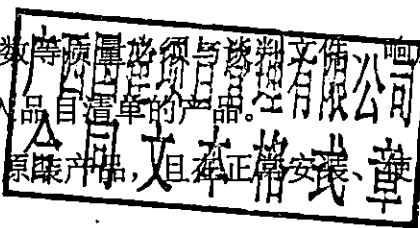 数等质量必须与谈判文件、响
广西国建项目管理有限公司
品目清单的产品。
合同文本格式章
原装产品，且在正常安装、使